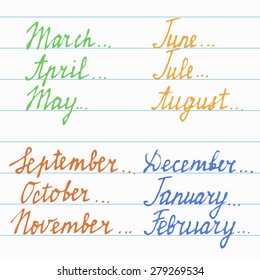 March...
April...
May...
June...
Jule...
August...
September...
October...
November...
December...
January...
February...
www.shutterstock.com · 279269534